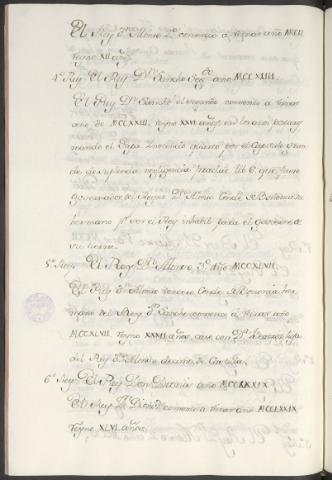 El Rey Dⁿ Alonso 2º comenzo a Reynar año MCCXI
Reyno XII años
4º Rey El Rey Dⁿ Sancho Seg.º año MCCXXIII.
El Rey Dⁿ Sancho el segundo comenzo a Reinar
año de MCCXXIII. Reyno XXVI años,
mando el Papa Inocencio quarto por el Capitulo gran
de de supplenda negligencia Prælat. lib 6 que fuese
governador del Reyno Dⁿ Alonso Conde de Bolonia su
hermano pr ser el Rey inhabil para el govierno de
su tierra.
5º Rey. El Rey Dⁿ Alonso 3º año MCCXLVII.
El Rey Dⁿ Alonso tercero Conde de Bolonia her
mano del Rey Dⁿ Sancho comenzo a Reinar año
MCCXLVII. Reyno XXXII años, caso con Dª Beatriz hija
del Rey Dⁿ Alonso decimo de Castilla.
6º Rey. El Rey Don Dionisio año MCCLXXIX
El Rey Dⁿ Dionisio comenzo a Reinar año MCCLXXIX
Reyno XLVI años.